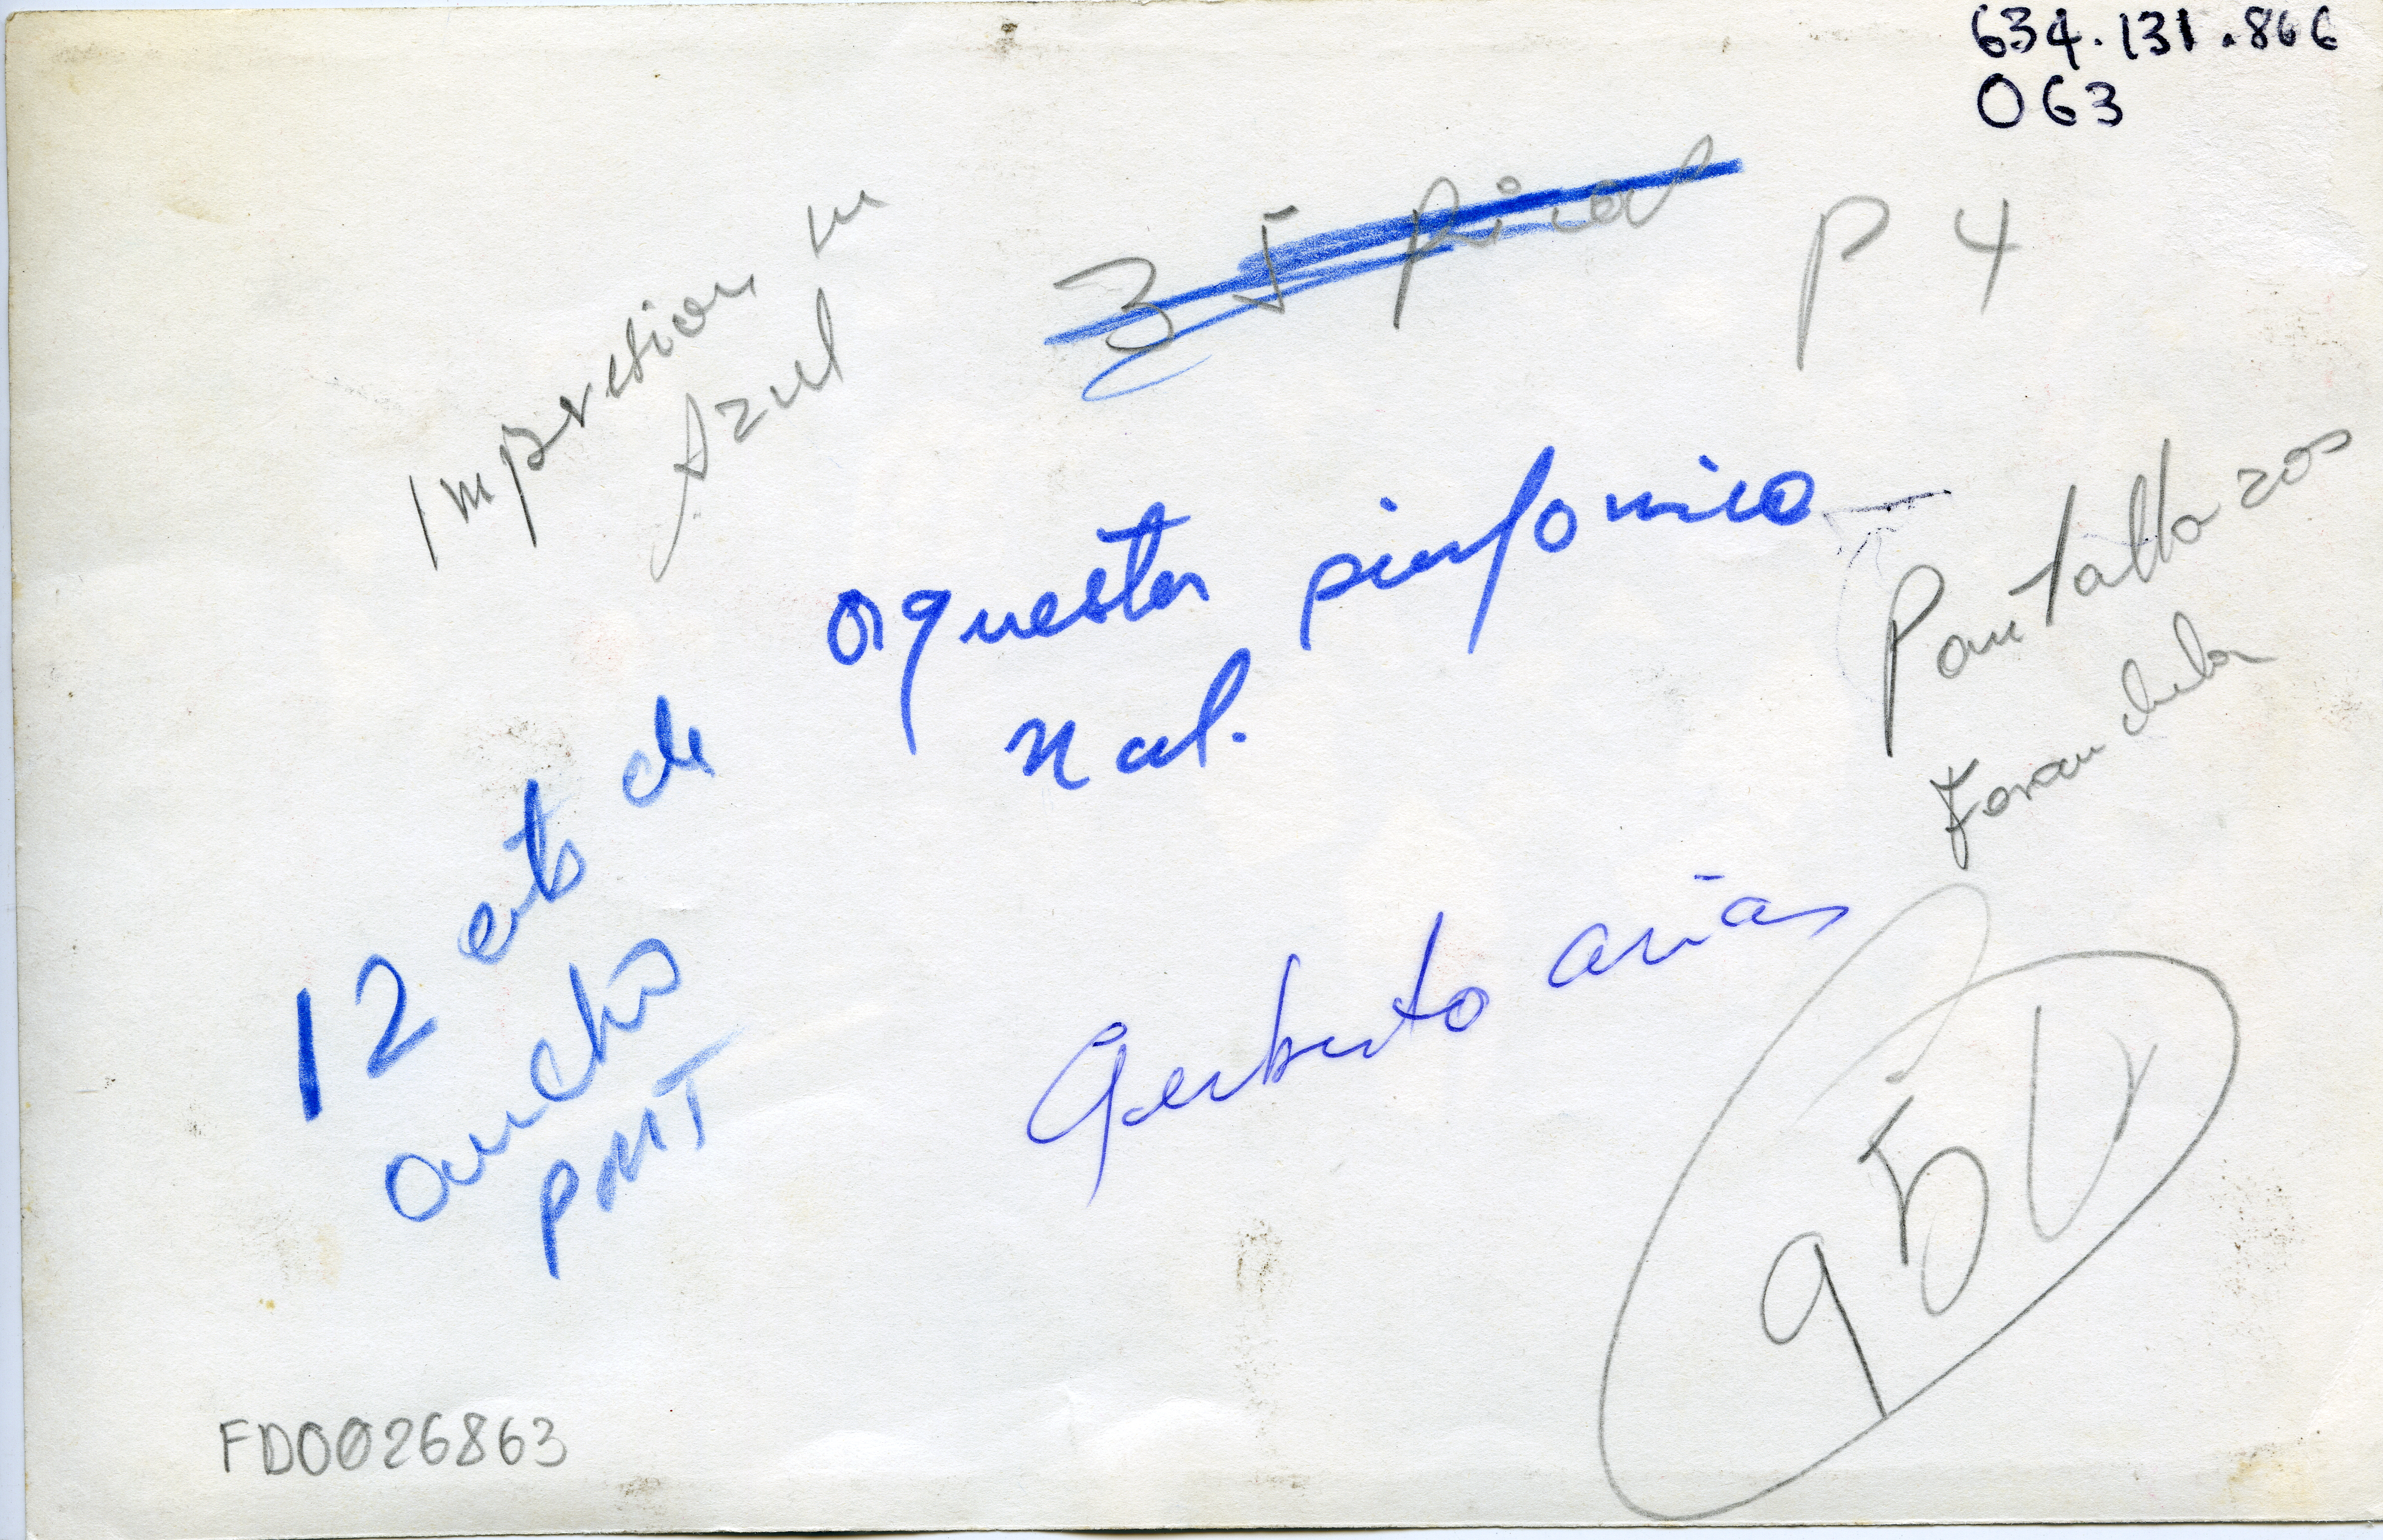 634.131.866
063
35 picas
P 4
Impresion en
Azul
Pantallazos
orquesta sinfonica
Nal.
12 cmts de
ancho
PMT
Gerberto arias
95
FD0026863